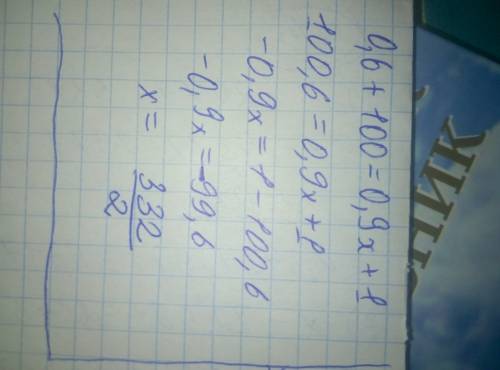 0,6 + 100 = 0,9x + 1
100,6 = 0,9x + 1
-0,9x = 1 - 100,6
-0,9x = -99,6
x = 332/2
НИК